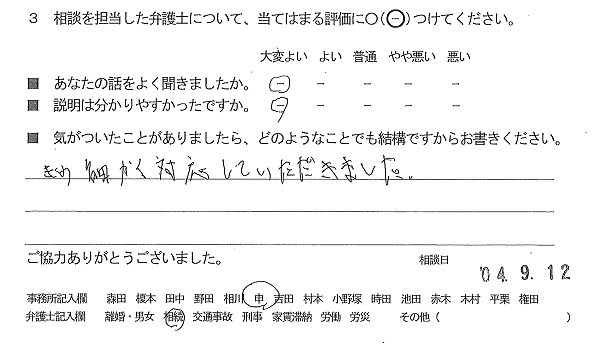 3 相談を担当した弁護士について、当てはまる評価に○(⊖)つけてください。
大変よい よい 普通 やや悪い 悪い
■ あなたの話をよく聞きましたか。 − − − − −
■ 説明は分かりやすかったですか。 − − − − −
■ 気がついたことがありましたら、どのようなことでも結構ですからお書きください。
きめ細かく対応していただきました。
ご協力ありがとうございました。 相談日
'04.9.12
事務所記入欄 森田 榎本 田中 野田 相川 申 吉田 村本 小野塚 時田 池田 赤木 木村 平栗 権田
弁護士記入欄 離婚・男女 相続 交通事故 刑事 家賃滞納 労働 労災 その他( )